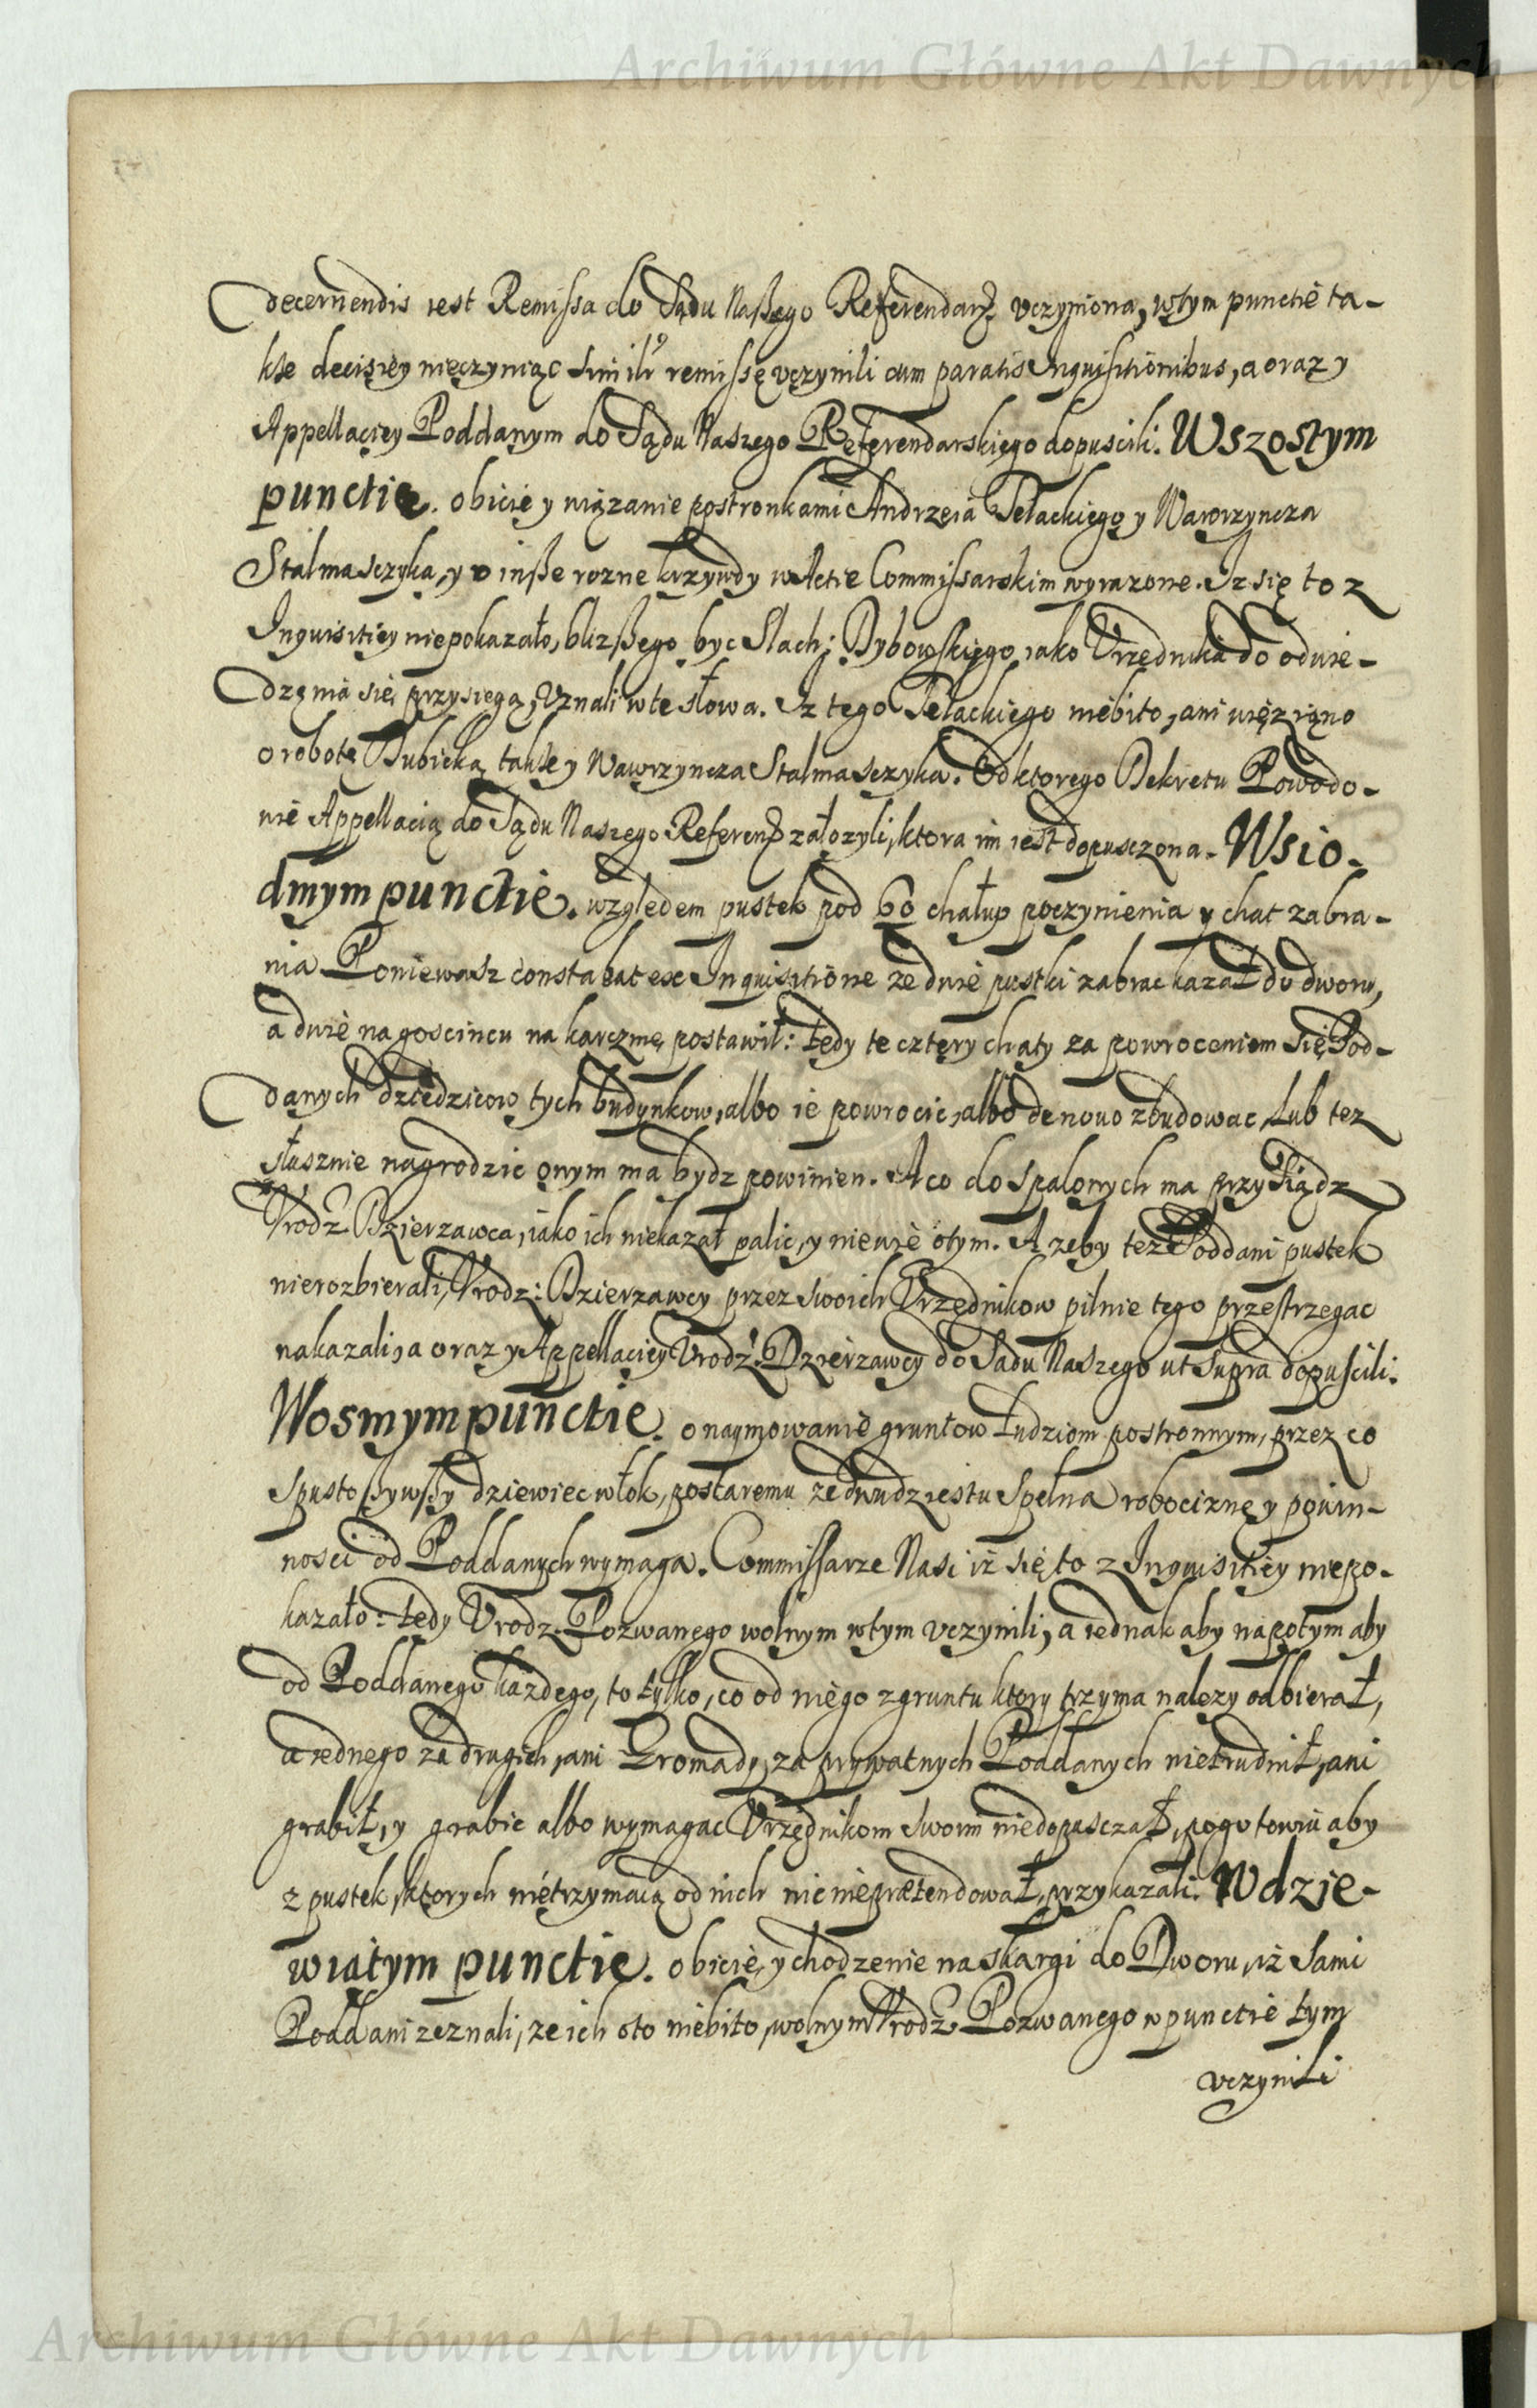 Archiwum Główne Akt Dawnych
decernendis iest Remissa do Sądu Naßego Referendarz vczyniona, wtym punctie ta-
kże decisiey nieczyniąc simili remissę vczynili cum paratis Inquisitionibus, a oraz y
Appellaciey Poddanym do Sądu Naszego Referendarskiego dopuscili. Wszostym
punctie. obicie y wiązanie postronkami Andrzeia Petackiego y Wawrzyncza
Stalmasczyka, y o inße rozne krzywdy w Actie Commissarskim wyrazone. Iz się to z
Inquisitiey niepokazało, blizßego byc Slach: Dybowskiego iako Vrzędnika do odwie-
dzęnia się przysięgą, Vznali w te słowa. Iz tego Petackiego niebito, ani więziąno
o robotę Dubicką także y Wawrzyncza Stalmasczyka. Od ktorego Dekretu Powodo-
wie Appellacią do Sądu Naszego Referend załozyli, ktora im iest dopusczona. Wsio-
dmym punctie. względem pustek pod 60 chałup poczynienia y chat zabra-
nia Poniewasz constabat ex Inquisitione ze dwie pustki zabrac kazał do dworu,
a dwie na goscincu na karczmę postawił: tędy te cztery chaty za powroceniem się Pod-
danych dziedzicow tych budynkow, albo ie powrocic, albo de nouo zbudowac, Lub tez
słusznie nagrodzic onym ma bydz powinien. A co do spalonych ma przysiądz
Vrodz. Dzierzawca, iako ich niekazał palic, y niewie otym. A zeby tez Poddani pustek
nierozbierali, Vrodz: Dzierzawcy przez swoich Vrzędnikow pilnie tego przestrzegac
nakazali, a oraz y Appellaciey Vrodz. Dzierzawcy do Sadu Naszego ut supra dopuscili.
Wosmym punctie. o naymowanie gruntow Ludziom postronnym, przez co
spustoßywßy dziewiec włok, postaremu ze dwudziestu Spełna robociznę y powin-
nosci od Poddanych wymaga. Commissarze Nasi iż się to z Inquisitiey niepo-
kazało: tedy Vrodz. Pozwanego wolnym wtym vczynili, a iednak aby napotym aby
od Poddanego każdego, to tylko, co od niego z gruntu ktory trzyma nalezy odbierał,
a iednego za drugich, ani Gromady, za prywatnych Poddanych nietrudnił, ani
grabił, y grabic albo wymagac Vrzędnikom swoim niedopusczał, pogotowiu aby
z pustek, ktorych nietrzymaią od nich nic nieprætendował, przykazali. W dzie-
wiątym punctie. obicie, y chodzenie na skargi do Dworu, iż sami
Poddani zeznali, ze ich oto niebito, wolnym Vrodz. Pozwanego w punctie tym
vczynili
Archiwum Główne Akt Dawnych